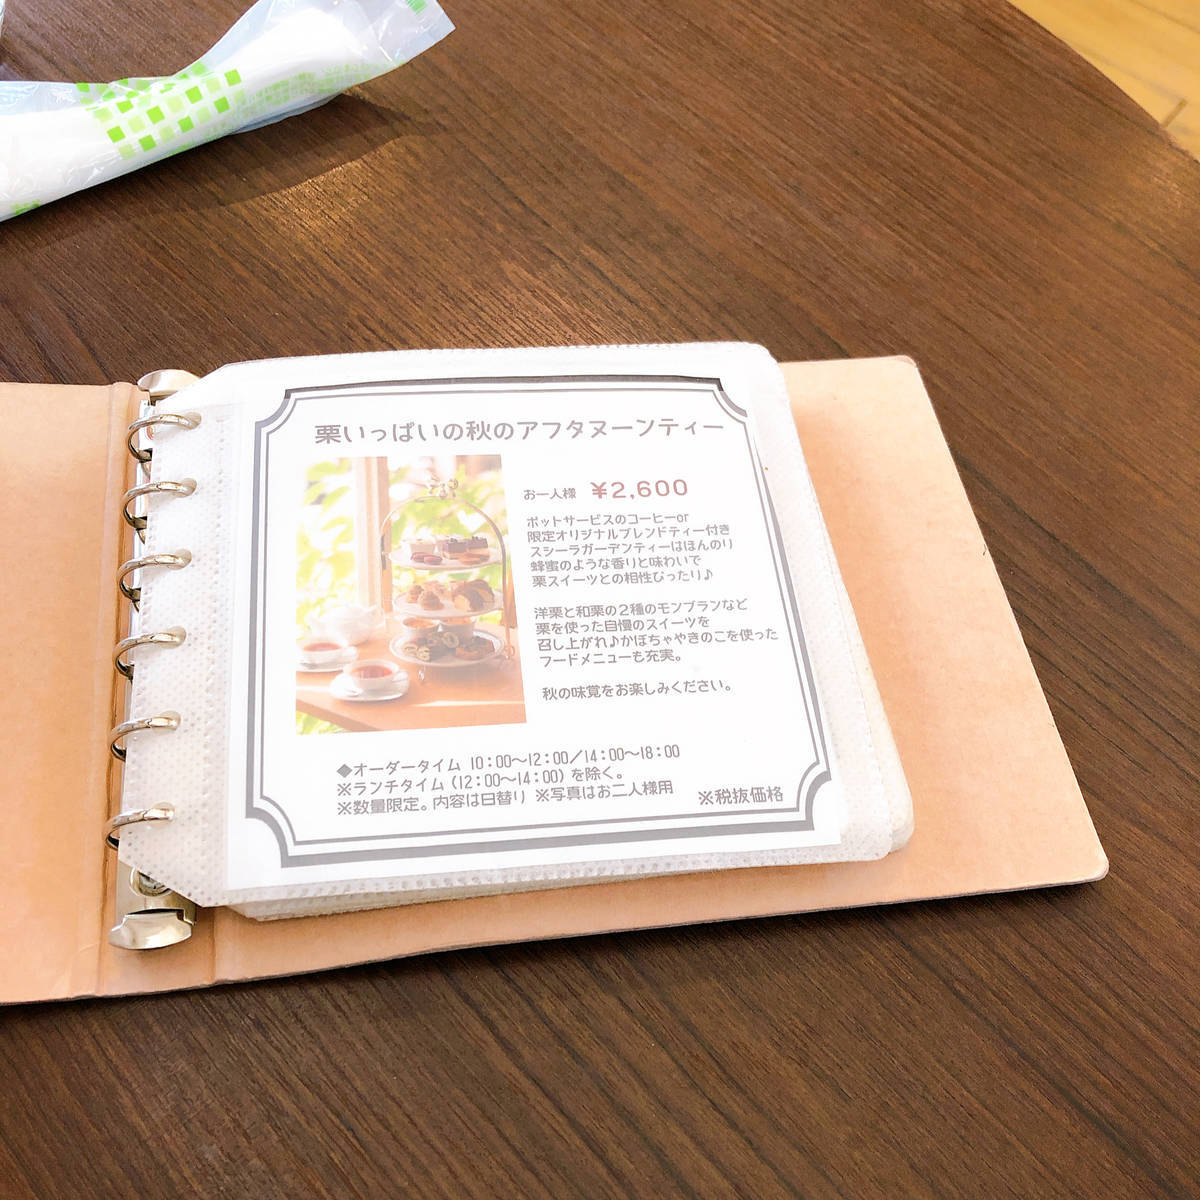 栗いっぱいの秋のアフタヌーンティー
お一人様 ¥2,600
ポットサービスのコーヒーor
限定オリジナルブレンドティー付き
スシーラガーデンティーはほんのり
蜂蜜のような香りと味わいで
栗スイーツとの相性ぴったり♪
洋栗と和栗の2種のモンブランなど
栗を使った自慢のスイーツを
召し上がれ♪かぼちゃやきのこを使った
フードメニューも充実。
秋の味覚をお楽しみください。
◆オーダータイム 10:00〜12:00/14:00〜18:00
※ランチタイム(12:00〜14:00)を除く。
※数量限定。内容は日替り ※写真はお二人様用 ※税抜価格